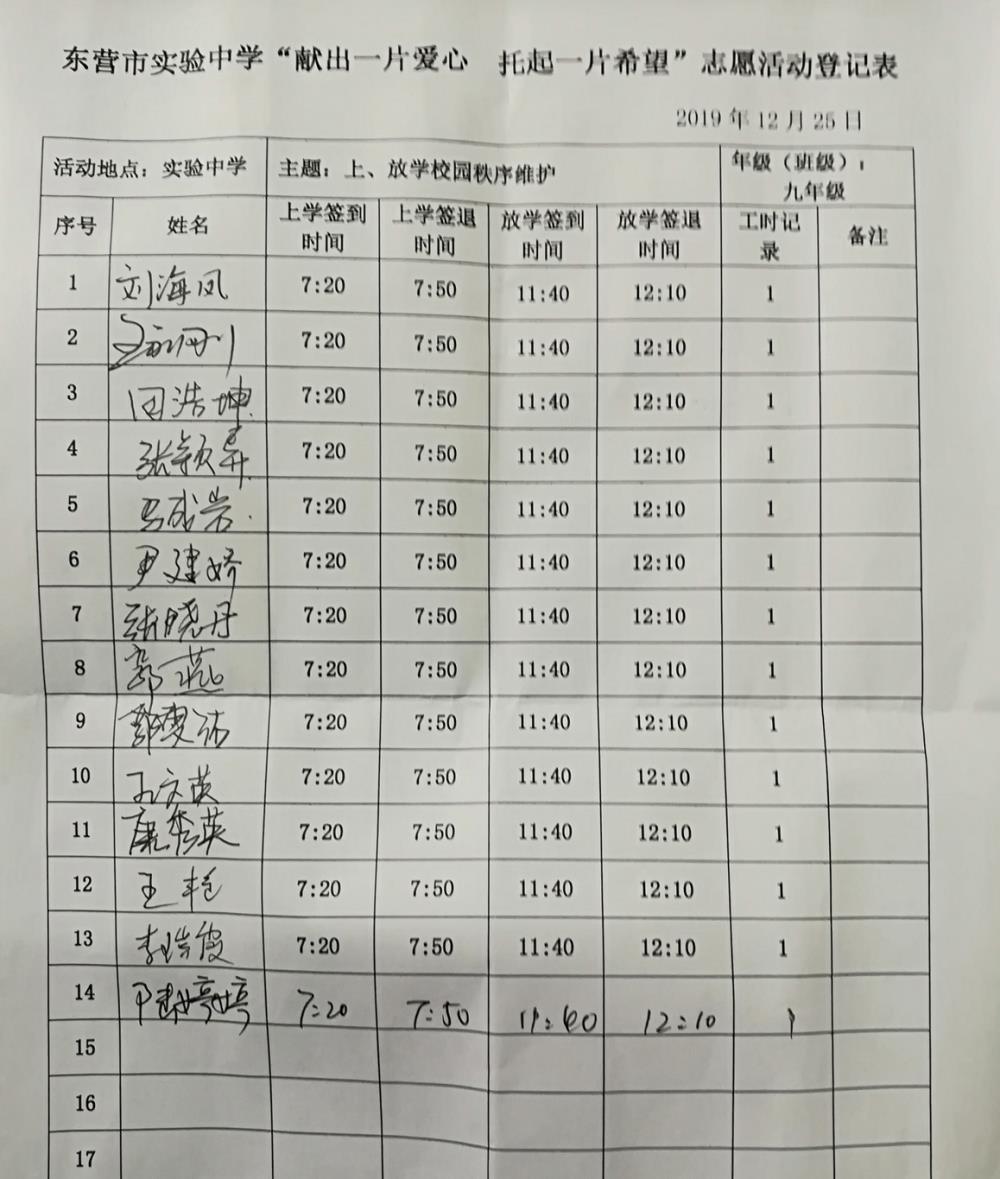 东营市实验中学“献出一片爱心 托起一片希望”志愿活动登记表
2019 年 12 月 25 日
活动地点：实验中学 主题：上、放学校园秩序维护 年级（班级）：九年级
序号 姓名 上学签到时间 上学签退时间 放学签到时间 放学签退时间 工时记录 备注
1 刘海凤 7:20 7:50 11:40 12:10 1
2 7:20 7:50 11:40 12:10 1
3 田浩坤 7:20 7:50 11:40 12:10 1
4 张颖 7:20 7:50 11:40 12:10 1
5 马成岩 7:20 7:50 11:40 12:10 1
6 尹建娇 7:20 7:50 11:40 12:10 1
7 张晓丹 7:20 7:50 11:40 12:10 1
8 郭燕 7:20 7:50 11:40 12:10 1
9 7:20 7:50 11:40 12:10 1
10 孔文英 7:20 7:50 11:40 12:10 1
11 康秀英 7:20 7:50 11:40 12:10 1
12 王艳 7:20 7:50 11:40 12:10 1
13 李瑞霞 7:20 7:50 11:40 12:10 1
14 婷婷 7:20 7:50 11:40 12:10 1
15
16
17